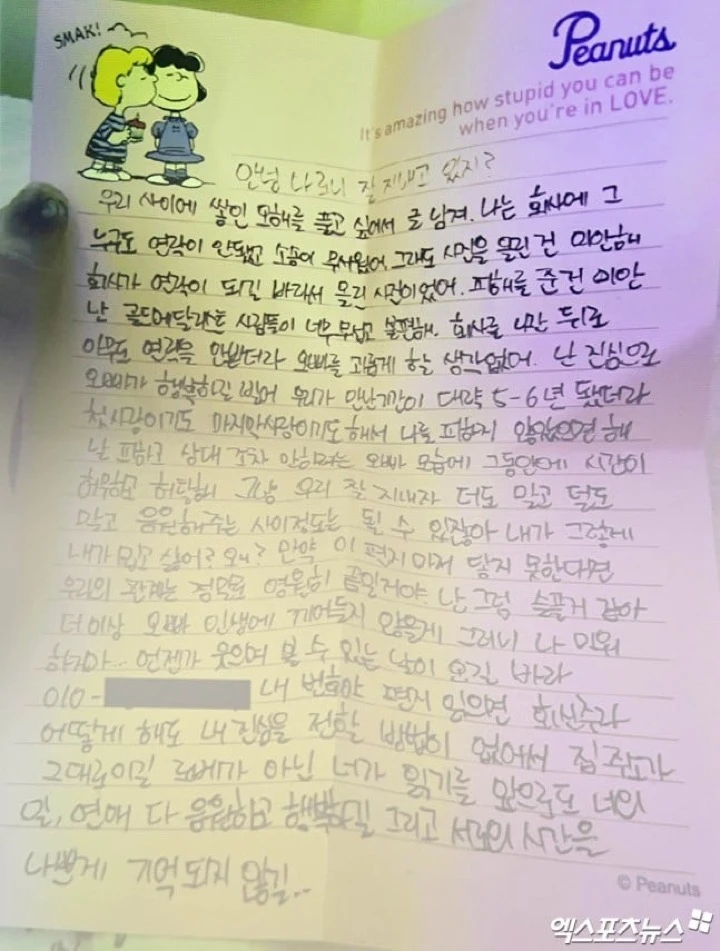 SMAK!
Peanuts
It's amazing how stupid you can be
when you're in LOVE.
안녕 나르니 잘 지내고 있지?
우리 사이에 쌓인 오해를 풀고 싶어서 글 남겨. 나는 회사에 그
누구도 연락이 안됐고 소송이 무서웠어. 그래도 사진을 올린 건 미안해
회사가 연락이 되길 바라서 올린 사진이었어. 피해를 준건 미안
난 골드메달리스트 사람들이 너무 무섭고 불편해. 회사를 나간 뒤로
아무도 연락을 안받더라 오빠를 괴롭게 할 생각없어. 난 진심으로
오빠가 행복하길 빌어 우리가 만난기간이 대략 5-6년 됐더라
첫사랑이기도 마지막사랑이기도 해서 나를 피하지 않았으면 해
날 피하고 상대조차 안하려는 오빠 모습에 그동안에 시간이
허무하고 허탈해 그냥 우리 잘 지내자 더도 말고 덜도
말고 응원해주는 사이정도는 될 수 있잖아 내가 그렇게
내가 밉고 싫어? 왜? 만약 이 편지마저 닿지 못한다면
우리의 관계는 정말로 영원히 끝일거야. 난 그럼 슬플거 같아
더이상 오빠 인생에 끼어들지 않을게 그러니 나 미워
하지마... 언젠가 웃으며 볼 수 있는 날이 오길 바라
010- 내 번호야 편지 읽으면 회신주라
어떻게 해도 내 진심을 전할 방법이 없어서 집 주소가
그대로이길 로베가 아닌 너가 읽기를 앞으로도 너의
일, 연애 다 응원하고 행복하길 그리고 서로의 시간을
나쁘게 기억되지 않길..
© Peanuts
엑스포츠뉴스